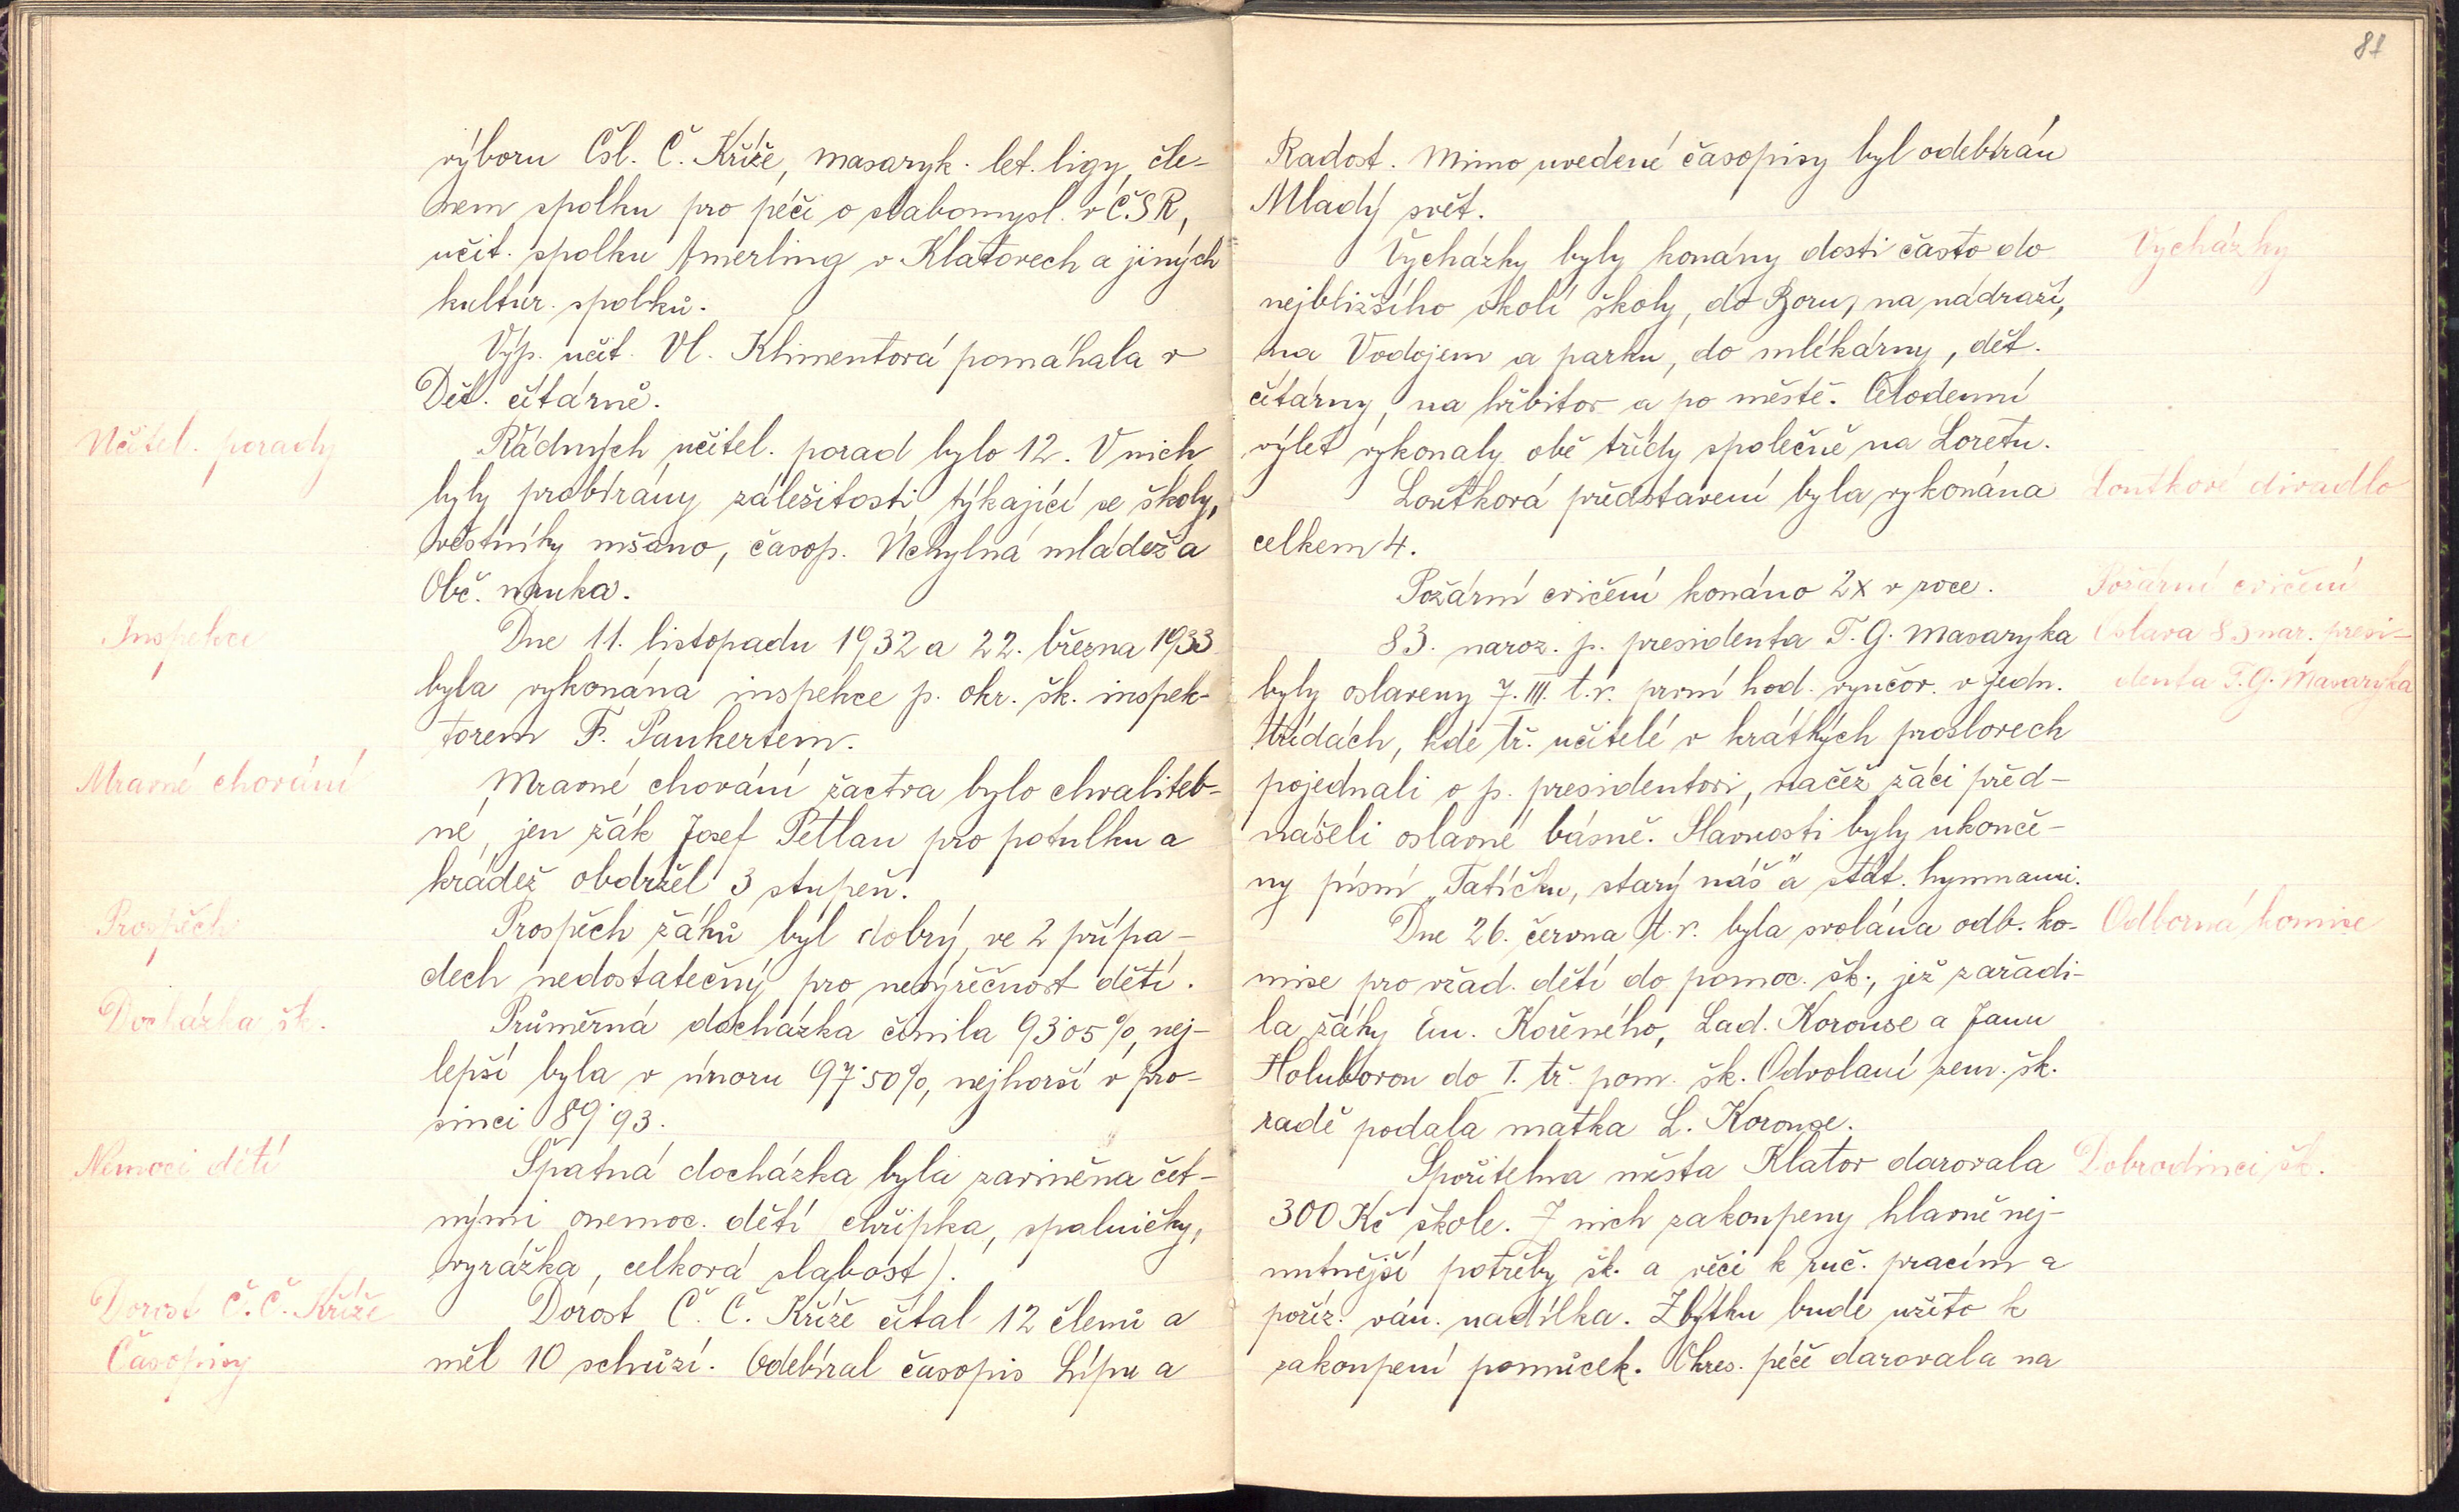 výboru Čsl. Č. Kříže, Masaryk. let. ligy, čle-
nem spolku pro péči o slabomysl. v Č.S.R,
učit. spolku Amerling v Klatovech a jiných
kultur. spolků.
Výp. učit. Vl. Klimentová pomáhala v
Dět. čítárně.
Učitel. porady
Řádných učitel. porad bylo 12. V nich
byly probírány záležitosti týkající se školy,
věstníky mšano, časop. Úchylná mládež a
Obč. nauka.
Inspekce
Dne 11. listopadu 1932 a 22. března 1933
byla vykonána inspekce p. okr. šk. inspek-
torem F. Pankertem.
Mravné chování
Mravné chování žactva bylo chvaliteb-
né, jen žák Josef Petlan pro potulku a
krádež obdržel 3 stupeň.
Prospěch
Prospěch žáků byl dobrý, ve 2 přípa-
dech nedostatečný pro nevýřečnost dětí.
Docházka šk.
Průměrná docházka činila 93·05%, nej-
lepší byla v únoru 97·50%, nejhorší v pro-
sinci 89·93.
Nemoci dětí
Špatná docházka byla zaviněna čet-
nými onemoc. dětí (chřipka, spalničky,
vyrážka, celková slabost).
Dorost Č. Č. Kříže
Dorost Č. Č. Kříže čítal 12 členů a
Časopisy
měl 10 schůzí. Odebíral časopis Lípu a
81
Radost. Mimo uvedené časopisy byl odebírán
Mladý svět.
Vycházky byly konány dosti často do
Vycházky
nejbližšího okolí školy, do Boru, na nádraží,
na Vodojem a parku, do mlékárny, dět.
čítárny, na hřbitov a po městě. Celodenní
výlet vykonaly obě třídy společně na Loretu.
Loutková představení byla vykonána
Loutkové divadlo
celkem 4.
Požární cvičení konáno 2x v roce.
Požární cvičení
83. naroz. p. presidenta T. G. Masaryka
Oslava 83 nar. presi-
byly oslaveny 7. III. t. r. první hod. vyučov. v jedn.
denta T. G. Masaryka
třídách, kde tř. učitelé v krátkých proslovech
pojednali o p. presidentovi, načež žáci před-
nášeli oslavné básně. Slavnosti byly ukonče-
ny písní „Tatíčku, starý náš" a stát. hymnami.
Dne 26. června t. r. byla svolána odb. ko-
Odborná komise
mise pro vřad. dětí do pomoc. šk., jež zařadi-
la žáky Em. Kořěného, Lad. Korouse a Janu
Holubovou do I. tř. pom. šk. Odvolání zem. šk.
radě podala matka L. Korouse.
Spořitelna města Klatov darovala
Dobrodinci šk.
300 Kč škole. Z nich zakoupeny hlavně nej-
nutnější potřeby šk. a věci k ruč. pracím a
poříz. ván. nadílka. Zbytku bude užito k
zakoupení pomůcek. Okres. péče darovala na